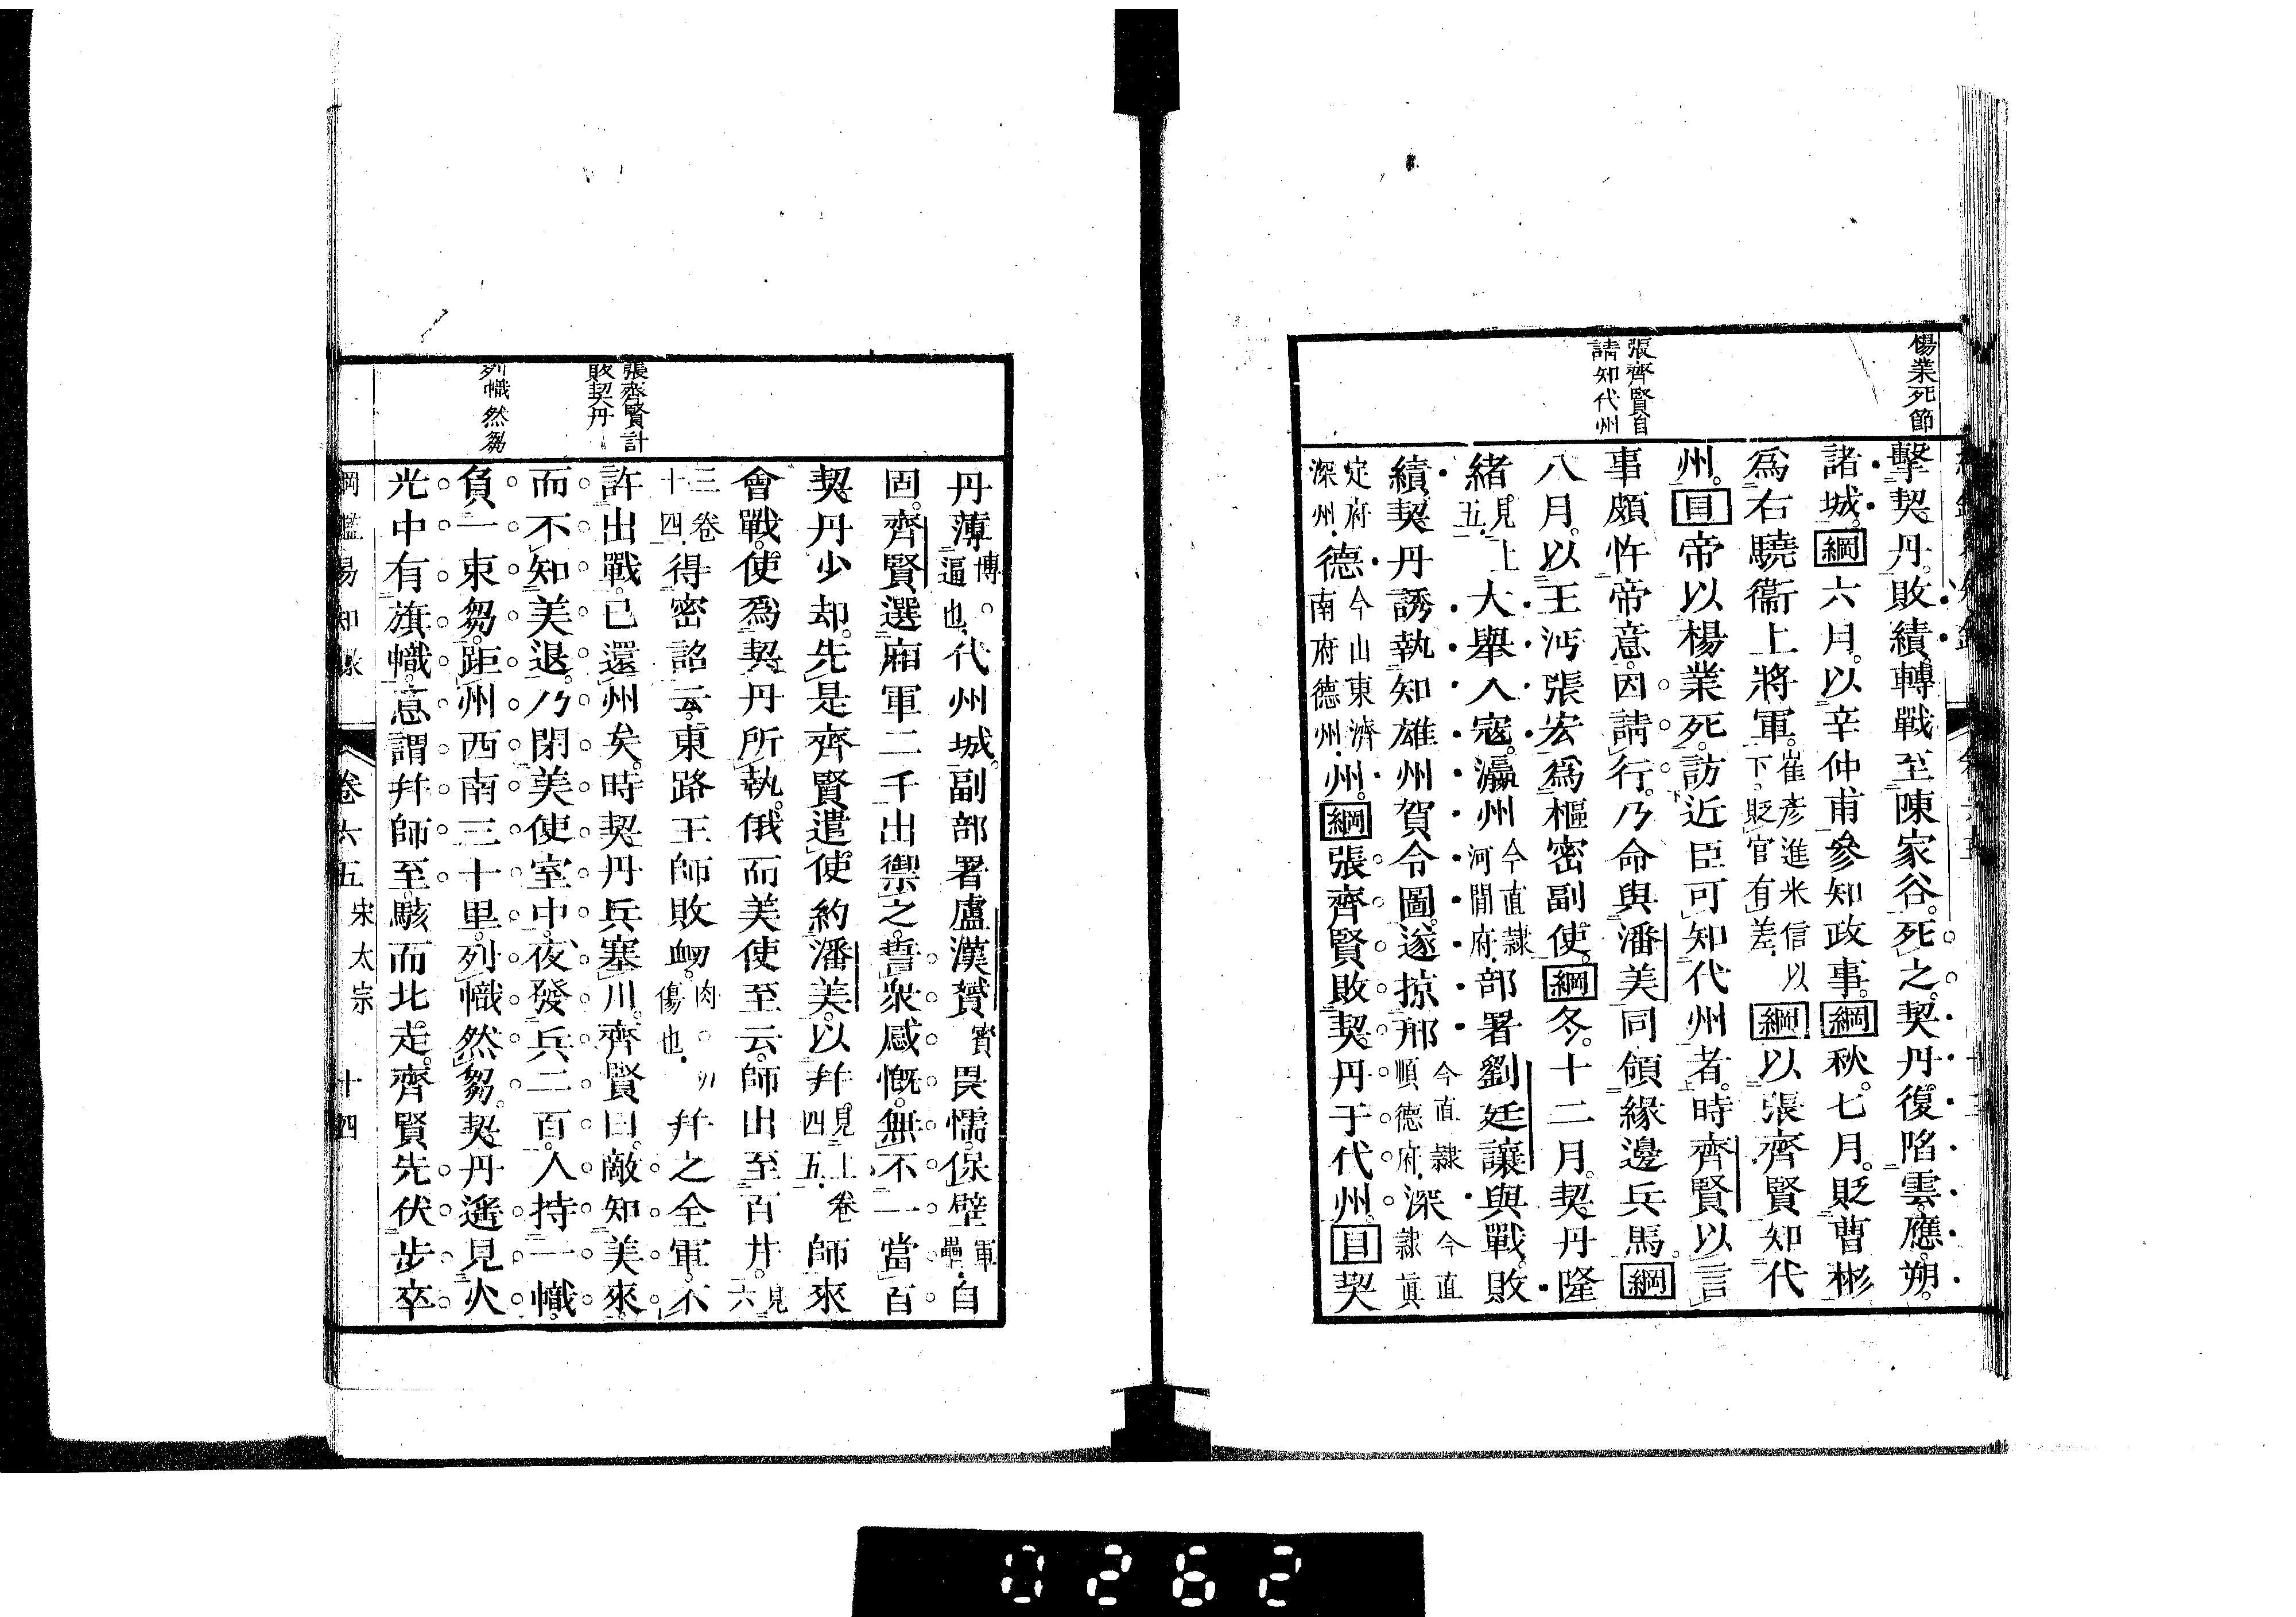 楊業死節
擊契丹敗績轉戰至陳家谷死之契丹復陷雲應朔
諸城綱六月以辛仲甫參知政事綱秋七月貶曹彬
爲右驍衞上將軍崔彥進米信以下貶官有差綱以張齊賢知代
張齊賢自
請知代州
州目帝以楊業死訪近臣可知代州者時齊賢以言
事頗忤帝意因請行乃命與潘美同領緣邊兵馬綱
八月以王沔張宏爲樞密副使綱冬十二月契丹隆
緒見上五大舉入寇瀛州今直隸河閒府部署劉廷讓與戰敗
績契丹誘執知雄州賀令圖遂掠邢今直隸順德府深今直隸眞
定府深州德今山東濟南府德州州綱張齊賢敗契丹于代州目契
丹薄博逼也代州城副部署盧漢贇賓畏懦保壁軍壘自
固齊賢選廂軍二千出禦之誓衆感慨無不一當百
契丹少却先是齊賢遣使約潘美以幷見上卷四五師來
會戰使爲契丹所執俄而美使至云師出至百井見六
三卷十四得密詔云東路王師敗衂肉傷也幷之全軍不
張齊賢計
敗契丹
許出戰已還州矣時契丹兵塞川齊賢曰敵知美來
而不知美退乃閉美使室中夜發兵二百人持一幟
列幟然芻
負一束芻距州西南三十里列幟然芻契丹遙見火
光中有旗幟意謂幷師至駭而北走齊賢先伏步卒
綱鑑易知錄 卷六五 宋太宗 十四
0262